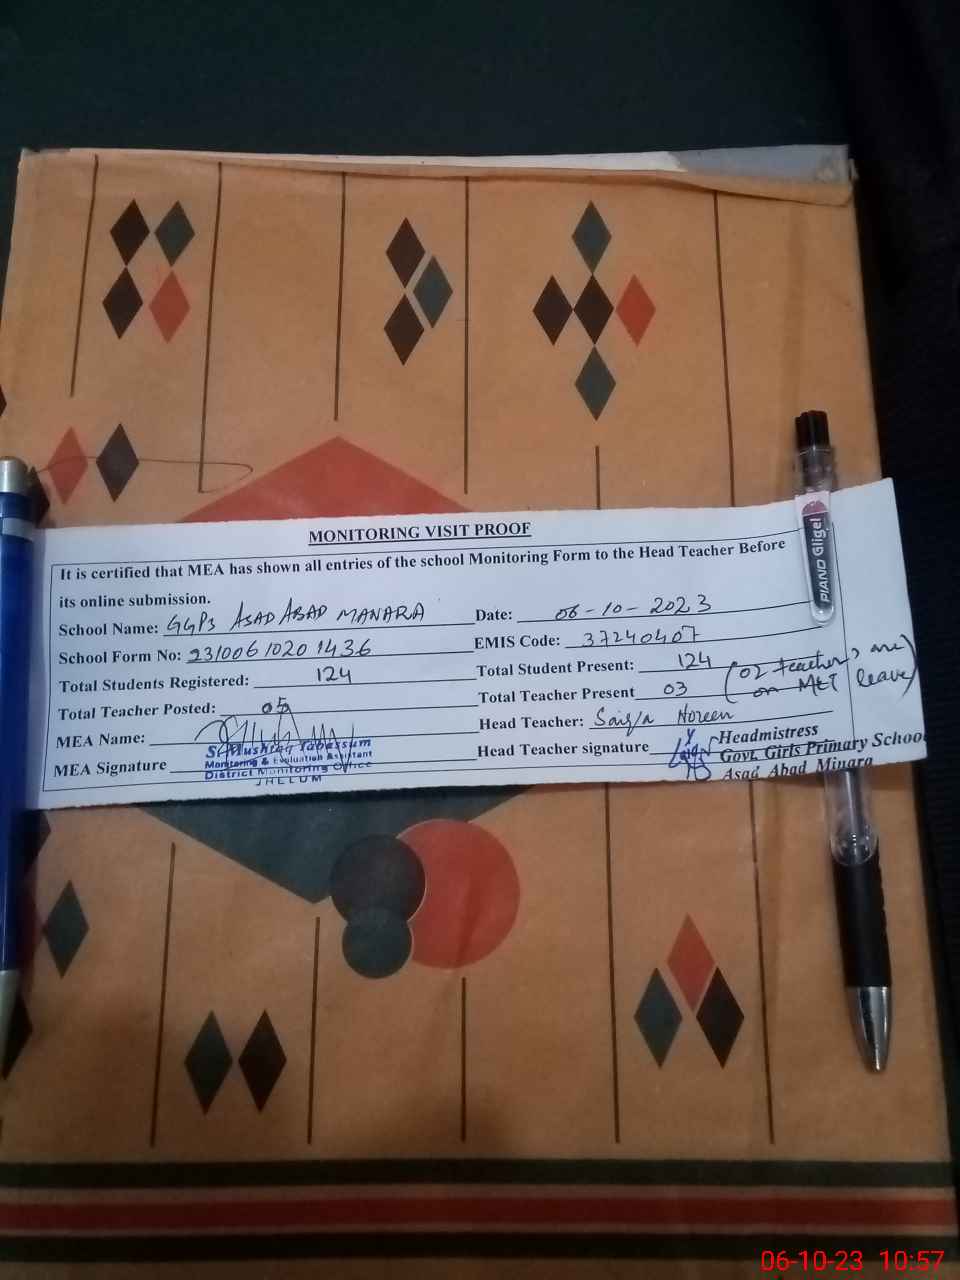 MONITORING VISIT PROOF
It is certified that MEA has shown all entries of the school Monitoring Form to the Head Teacher Before
its online submission.
School Name: GGPS ASAD ABAD MANARA Date: 06-10-2023
School Form No: 23100610201436 EMIS Code: 37240407
Total Students Registered: 124 Total Student Present: 124
Total Teacher Posted: 05 Total Teacher Present 03 (02 teachers are on MET leave)
MEA Name: Head Teacher: Saiqa Noreen
MEA Signature Head Teacher signature
Mushtaq Tabassum
Monitoring & Evaluation Assistant
District Monitoring Office
JHELUM
Headmistress
Govt. Girls Primary School
Asad Abad Minara
PIANO Gligel
06-10-23 10:57